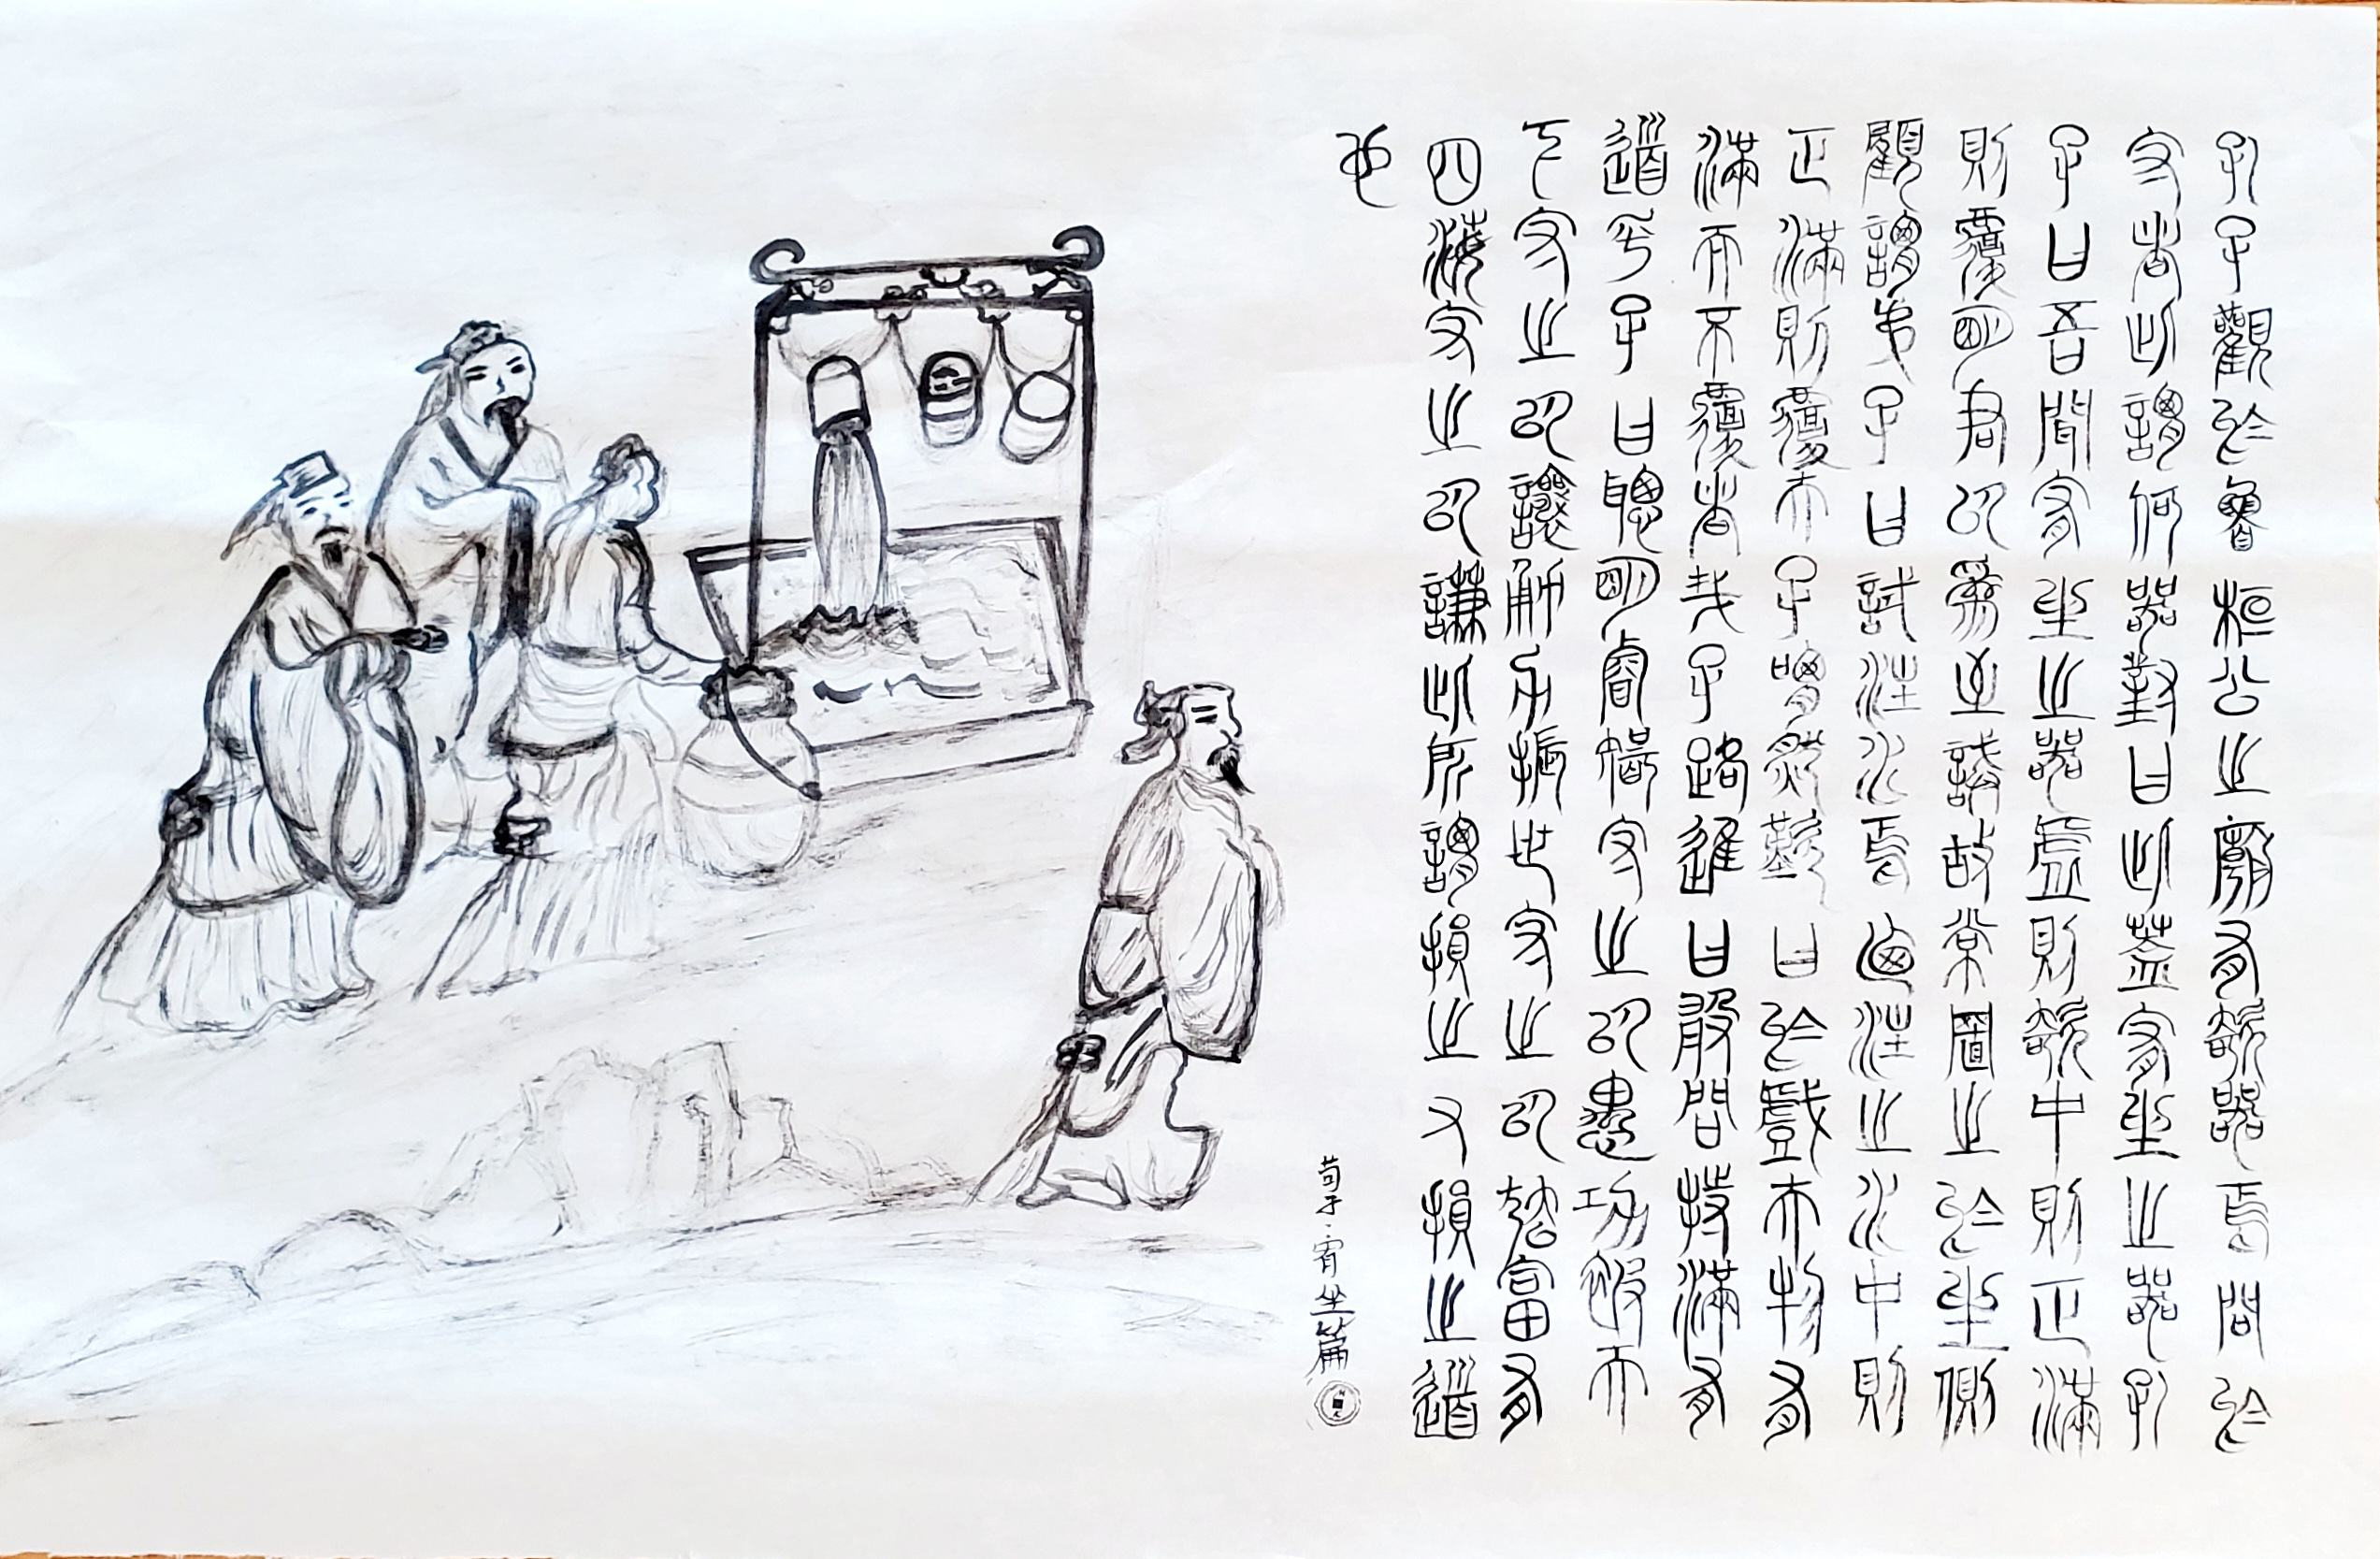 孔子觀於魯桓公之廟有欹器焉問於
守者此謂何器對曰此蓋宥坐之器孔
子曰吾聞宥坐之器虛則欹中則正滿
則覆明君以為至誡故常置之於坐側
顧謂弟子曰試注水焉迺注之水中則
正滿則覆夫子喟然歎曰於戲夫物有
滿而不覆者哉子路進曰敢問持滿有
道乎子曰聰明睿智守之以愚功被天
下守之以讓勇力振世守之以怯富有
四海守之以謙此所謂損之又損之道
也
荀子·宥坐篇